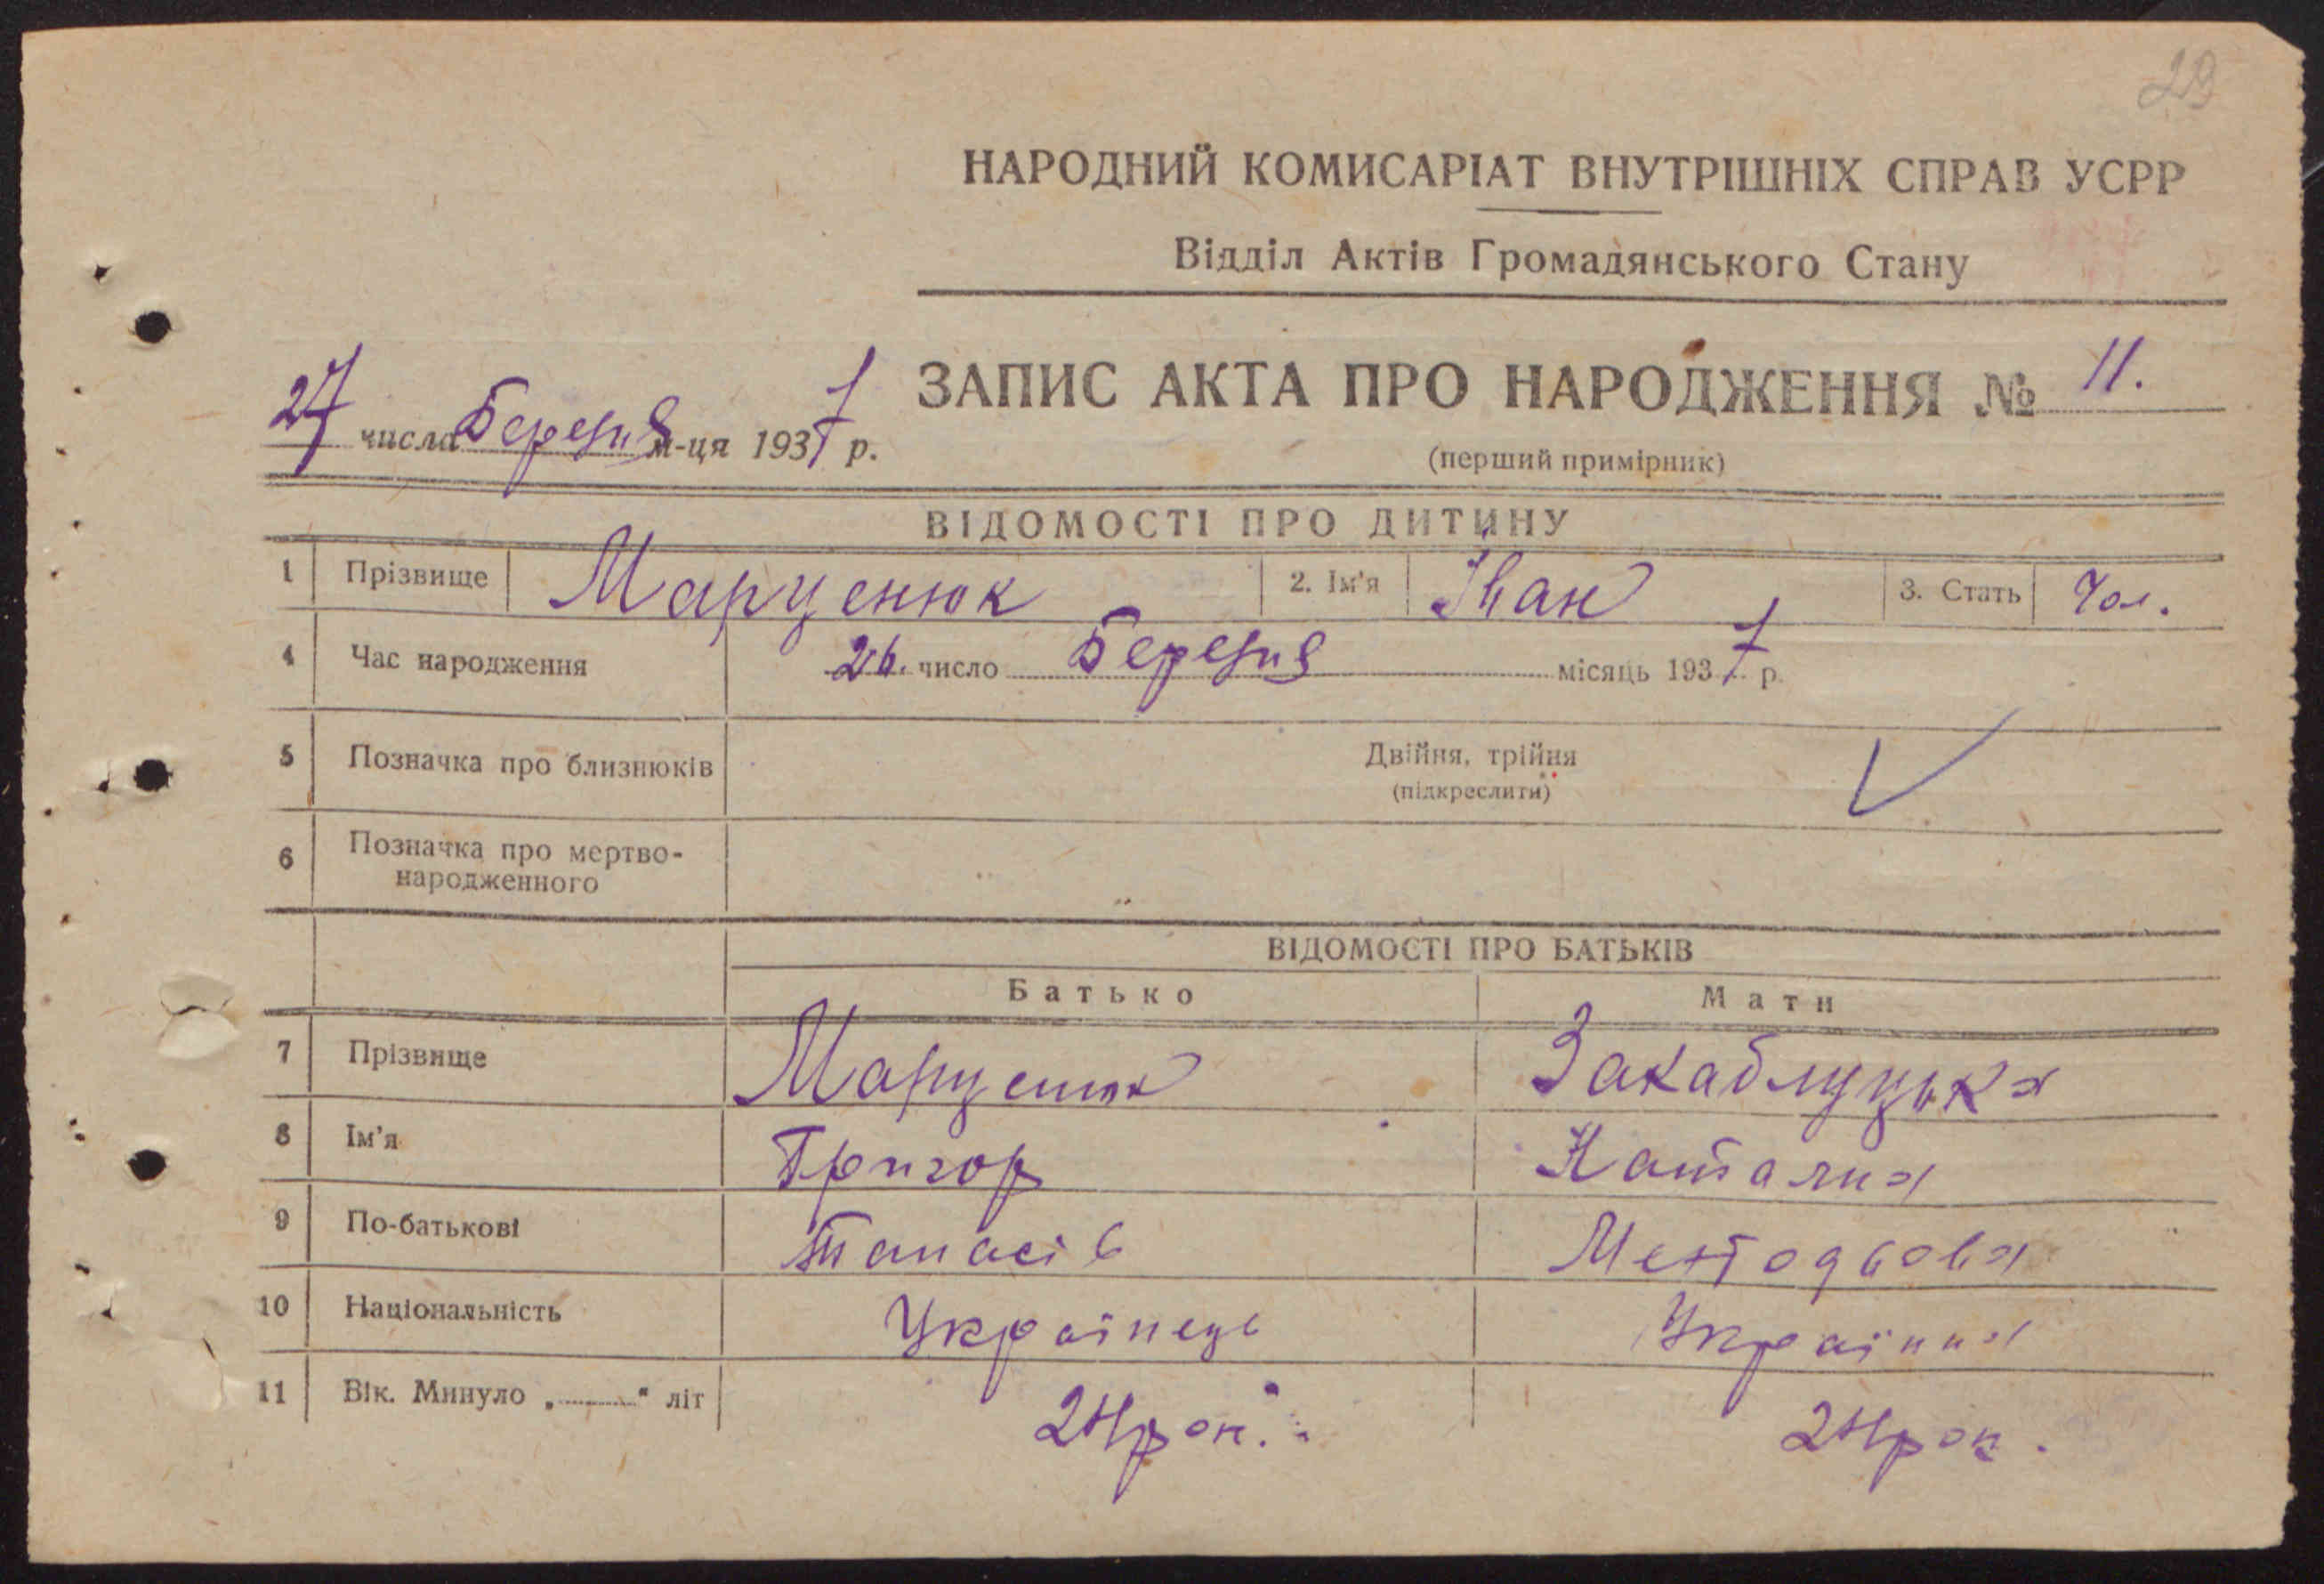 29
НАРОДНИЙ КОМИСАРІАТ ВНУТРІШНІХ СПРАВ УСРР
Відділ Актів Громадянського Стану
27 числа Березня м-ця 1937 р.
ЗАПИС АКТА ПРО НАРОДЖЕННЯ № 11.
(перший примірник)
ВІДОМОСТІ ПРО ДИТИНУ
1 Прізвище Марценюк 2. Ім'я Іван 3. Стать Чол.
4 Час народження 26. число Березня місяць 1937 р.
5 Позначка про близнюків Двійня, трійня
(підкреслити)
6 Позначка про мертво-
народженного
ВІДОМОСТІ ПРО БАТЬКІВ
Батько Мати
7 Прізвище Марценюк Закаблуцька
8 Ім'я Григор Наталия
9 По-батькові Танасів Методьова
10 Національність Українець Українка
11 Вік. Минуло „ “ літ рок. рок.